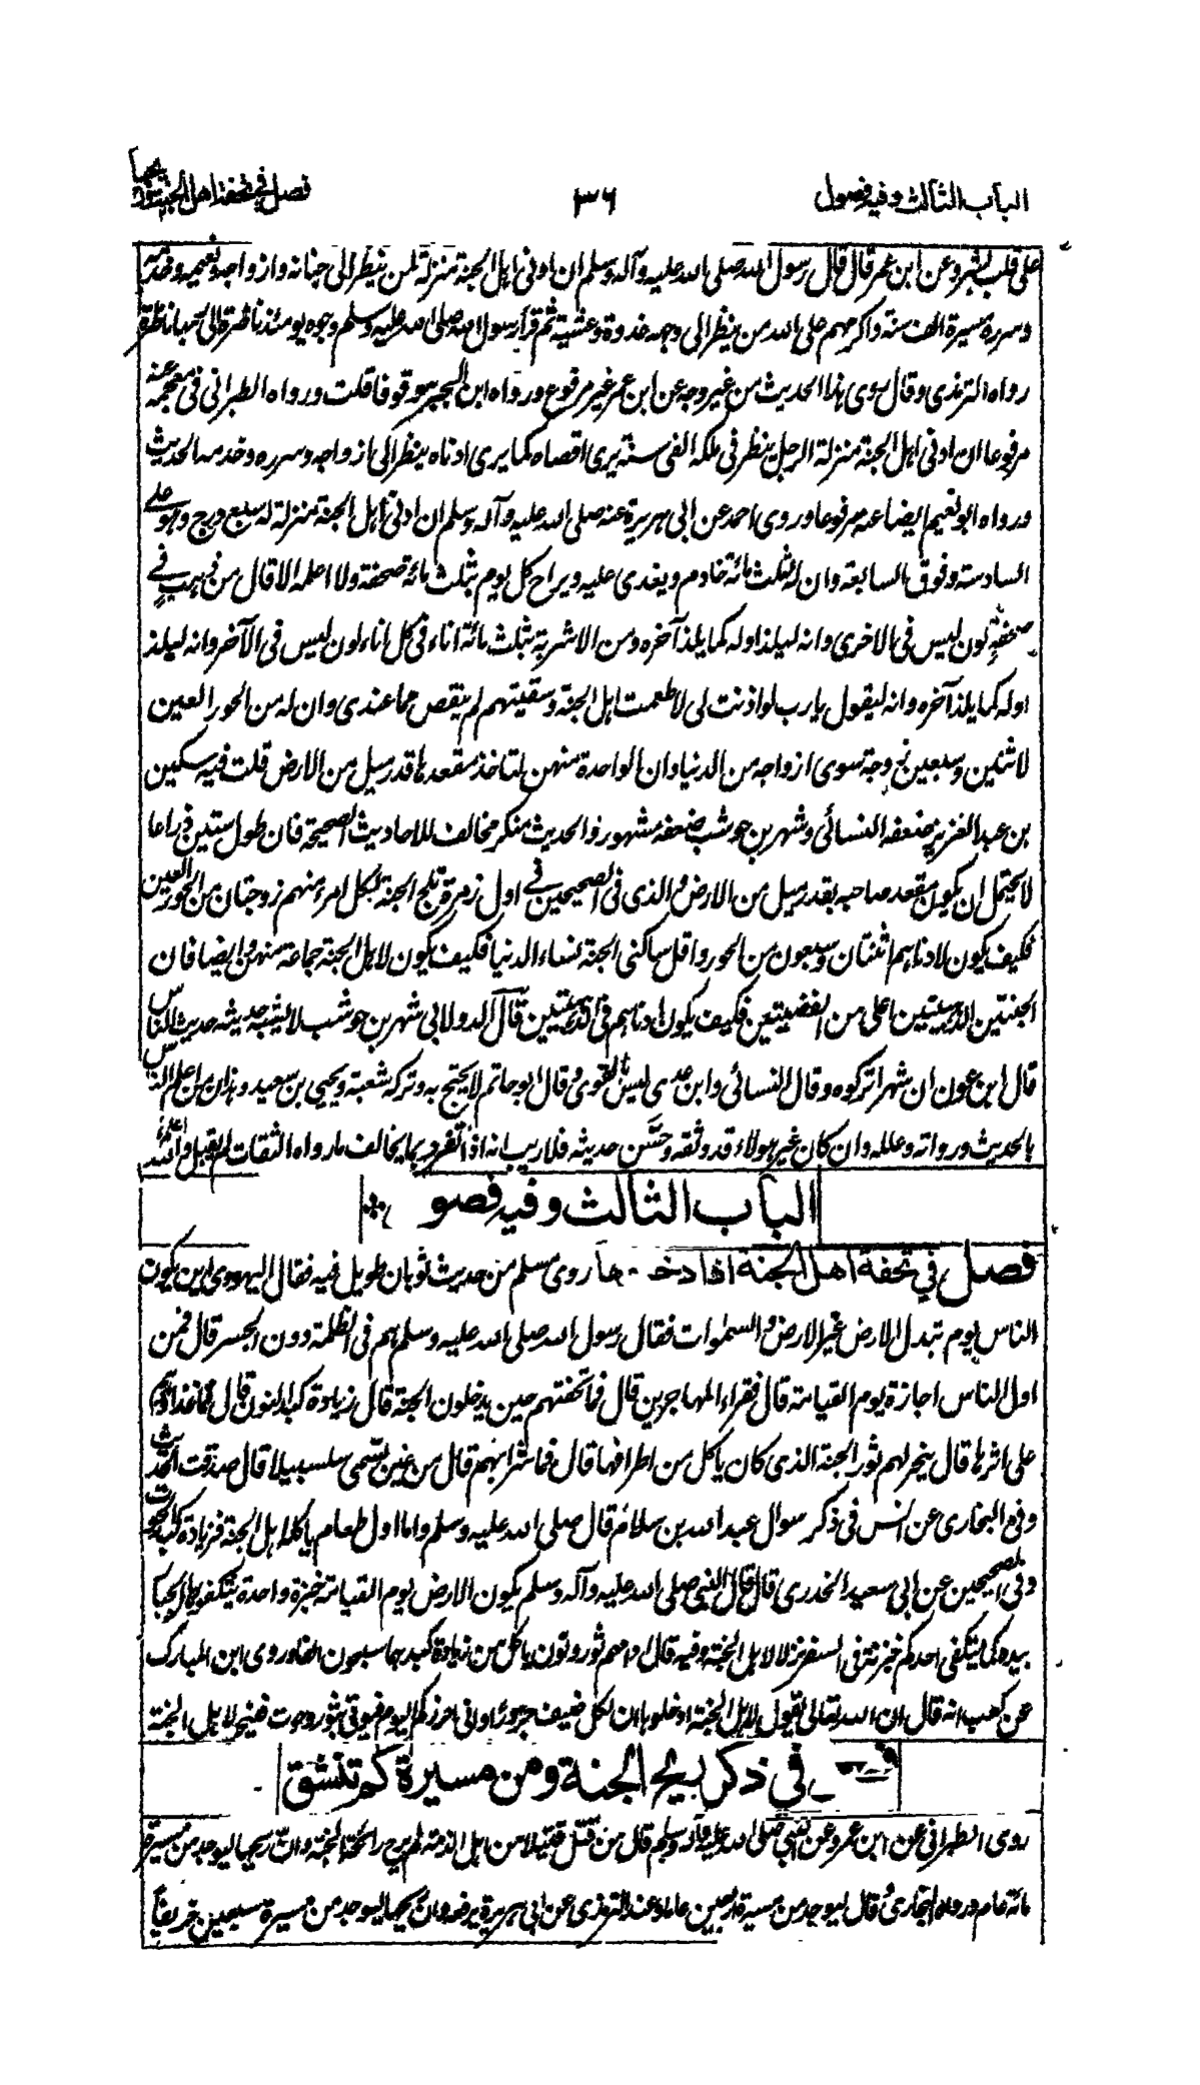 الباب الثالث وفيه فصول
٣٦
فصل في تحفة اهل الجنة وريحها
على قلب بشر وعن ابن عمر قال قال رسول الله صلى الله عليه وآله وسلم ان ادنى اهل الجنة منزلة لمن ينظر الى جنانه وازواجه ونعيمه وخدمه
وسرره مسيرة الف سنة واكرمهم على الله من ينظر الى وجهه غدوة وعشية ثم قرأ رسول الله صلى الله عليه وسلم وجوه يومئذ ناظرة الى ربها ناظرة
رواه الترمذي وقال روى هذا الحديث من غير وجه عن ابن عمر غير مرفوع ورواه ابن ابجر موقوفا قلت ورواه الطبراني في معجمه عنه
مرفوعا ان ادنى اهل الجنة منزلة الرجل ينظر في ملكه الفي سنة يرى اقصاه كما يرى ادناه ينظر الى ازواجه وسرره وخدمه الحديث
ورواه ابو نعيم ايضا عنه مرفوعا وروى احمد عن ابي هريرة عنه صلى الله عليه وآله وسلم ان ادنى اهل الجنة منزلة له سبع درج وهو على
السادسة وفوق السابعة وان له ثلث مائة خادم ويغدى عليه ويراح كل يوم بثلث مائة صحفة ولا اعلمه الا قال من ذهب في
صحفة لون ليس في الاخرى وانه ليلذ اوله كما يلذ آخره ومن الاشربة بثلث مائة اناء في كل اناء لون ليس في الآخر وانه ليلذ
اوله كما يلذ آخره وانه ليقول يا رب لو اذنت لي لاطعمت اهل الجنة وسقيتهم لم ينقص مما عندي وان له من الحور العين
لاثنين وسبعين زوجة سوى ازواجه من الدنيا وان الواحدة منهن لتاخذ مقعدها قدر ميل من الارض قلت فيه سكين
بن عبد العزيز ضعفه النسائي وشهر بن حوشب ضعفه مشهور والحديث منكر مخالف للاحاديث الصحيحة فان طول ستين ذراعا
لا يحتمل ان يكون مقعد صاحبه بقدر ميل من الارض والذي في الصحيحين في اول زمرة تلج الجنة لكل امرء منهم زوجتان من الحور العين
فكيف يكون لادناهم اثنتان وسبعون من الحور واقل ساكني الجنة نساء الدنيا فكيف يكون لاهل الجنة جماعة منهن وايضا فان
الجنتين الذهبيتين اعلى من الفضيتين فكيف يكون ادناهم في الذهبيتين قال الدولابي شهر بن حوشب لا يشبه حديثه حديث الناس
قال ابن عون ان شهرا تركوه وقال النسائي وابن عدي ليس بالقوي وقال ابو حاتم لا يحتج به وتركه شعبة ويحيى بن سعيد وهذان من اعلم الناس
بالحديث ورواته وعلله وان كان غير هولاء قد وثقه وحسن حديثه فلا ريب انه اذا تفرد بما يخالف ما رواه الثقات لم يقبل والله اعلم
الباب الثالث وفيه فصول
فصل في تحفة اهل الجنة اذا دخلوها روى مسلم من حديث ثوبان طويل فيه فقال اليهودي اين يكون
الناس يوم تبدل الارض غير الارض والسموات فقال رسول الله صلى الله عليه وسلم هم في الظلمة دون الجسر قال فمن
اول الناس اجازة يوم القيامة قال فقراء المهاجرين قال فما تحفتهم حين يدخلون الجنة قال زيادة كبد النون قال فما غذاؤهم
على اثرها قال ينحر لهم ثور الجنة الذي كان ياكل من اطرافها قال فما شرابهم قال من عين تسمى سلسبيلا قال صدقت الحديث
وفي البخاري عن انس في ذكر سوال عبد الله بن سلام قال صلى الله عليه وسلم واما اول طعام ياكله اهل الجنة فزيادة كبد الحوت
وفي الصحيحين عن ابي سعيد الخدري قال قال النبي صلى الله عليه وآله وسلم يكون الارض يوم القيامة خبزة واحدة يتكفؤها الجبار
بيده كما يتكفى احدكم خبزته في السفر نزلا لاهل الجنة وفيه قال ادامهم ثور ونون ياكل من زيادة كبدهما سبعون الفا وروى ابن المبارك
عن كعب انه قال ان الله تعالى يقول لاهل الجنة ادخلوها ان لكل ضيف جزورا واني اجزركم اليوم فيوتى بثور وحوت فينحر لاهل الجنة
فصل في ذكر ريح الجنة ومن مسيرة كم تنشق
روى الطبراني عن ابن عمرو عن النبي صلى الله عليه وآله وسلم قال من قتل قتيلا من اهل الذمة لم يرح رائحة الجنة وان ريحها ليوجد من مسيرة
مائة عام ورواه البخاري وقال ليوجد من مسيرة اربعين عاما وعند الترمذي عن ابي هريرة يرفعه وان ريحها ليوجد من مسيرة سبعين خريفا